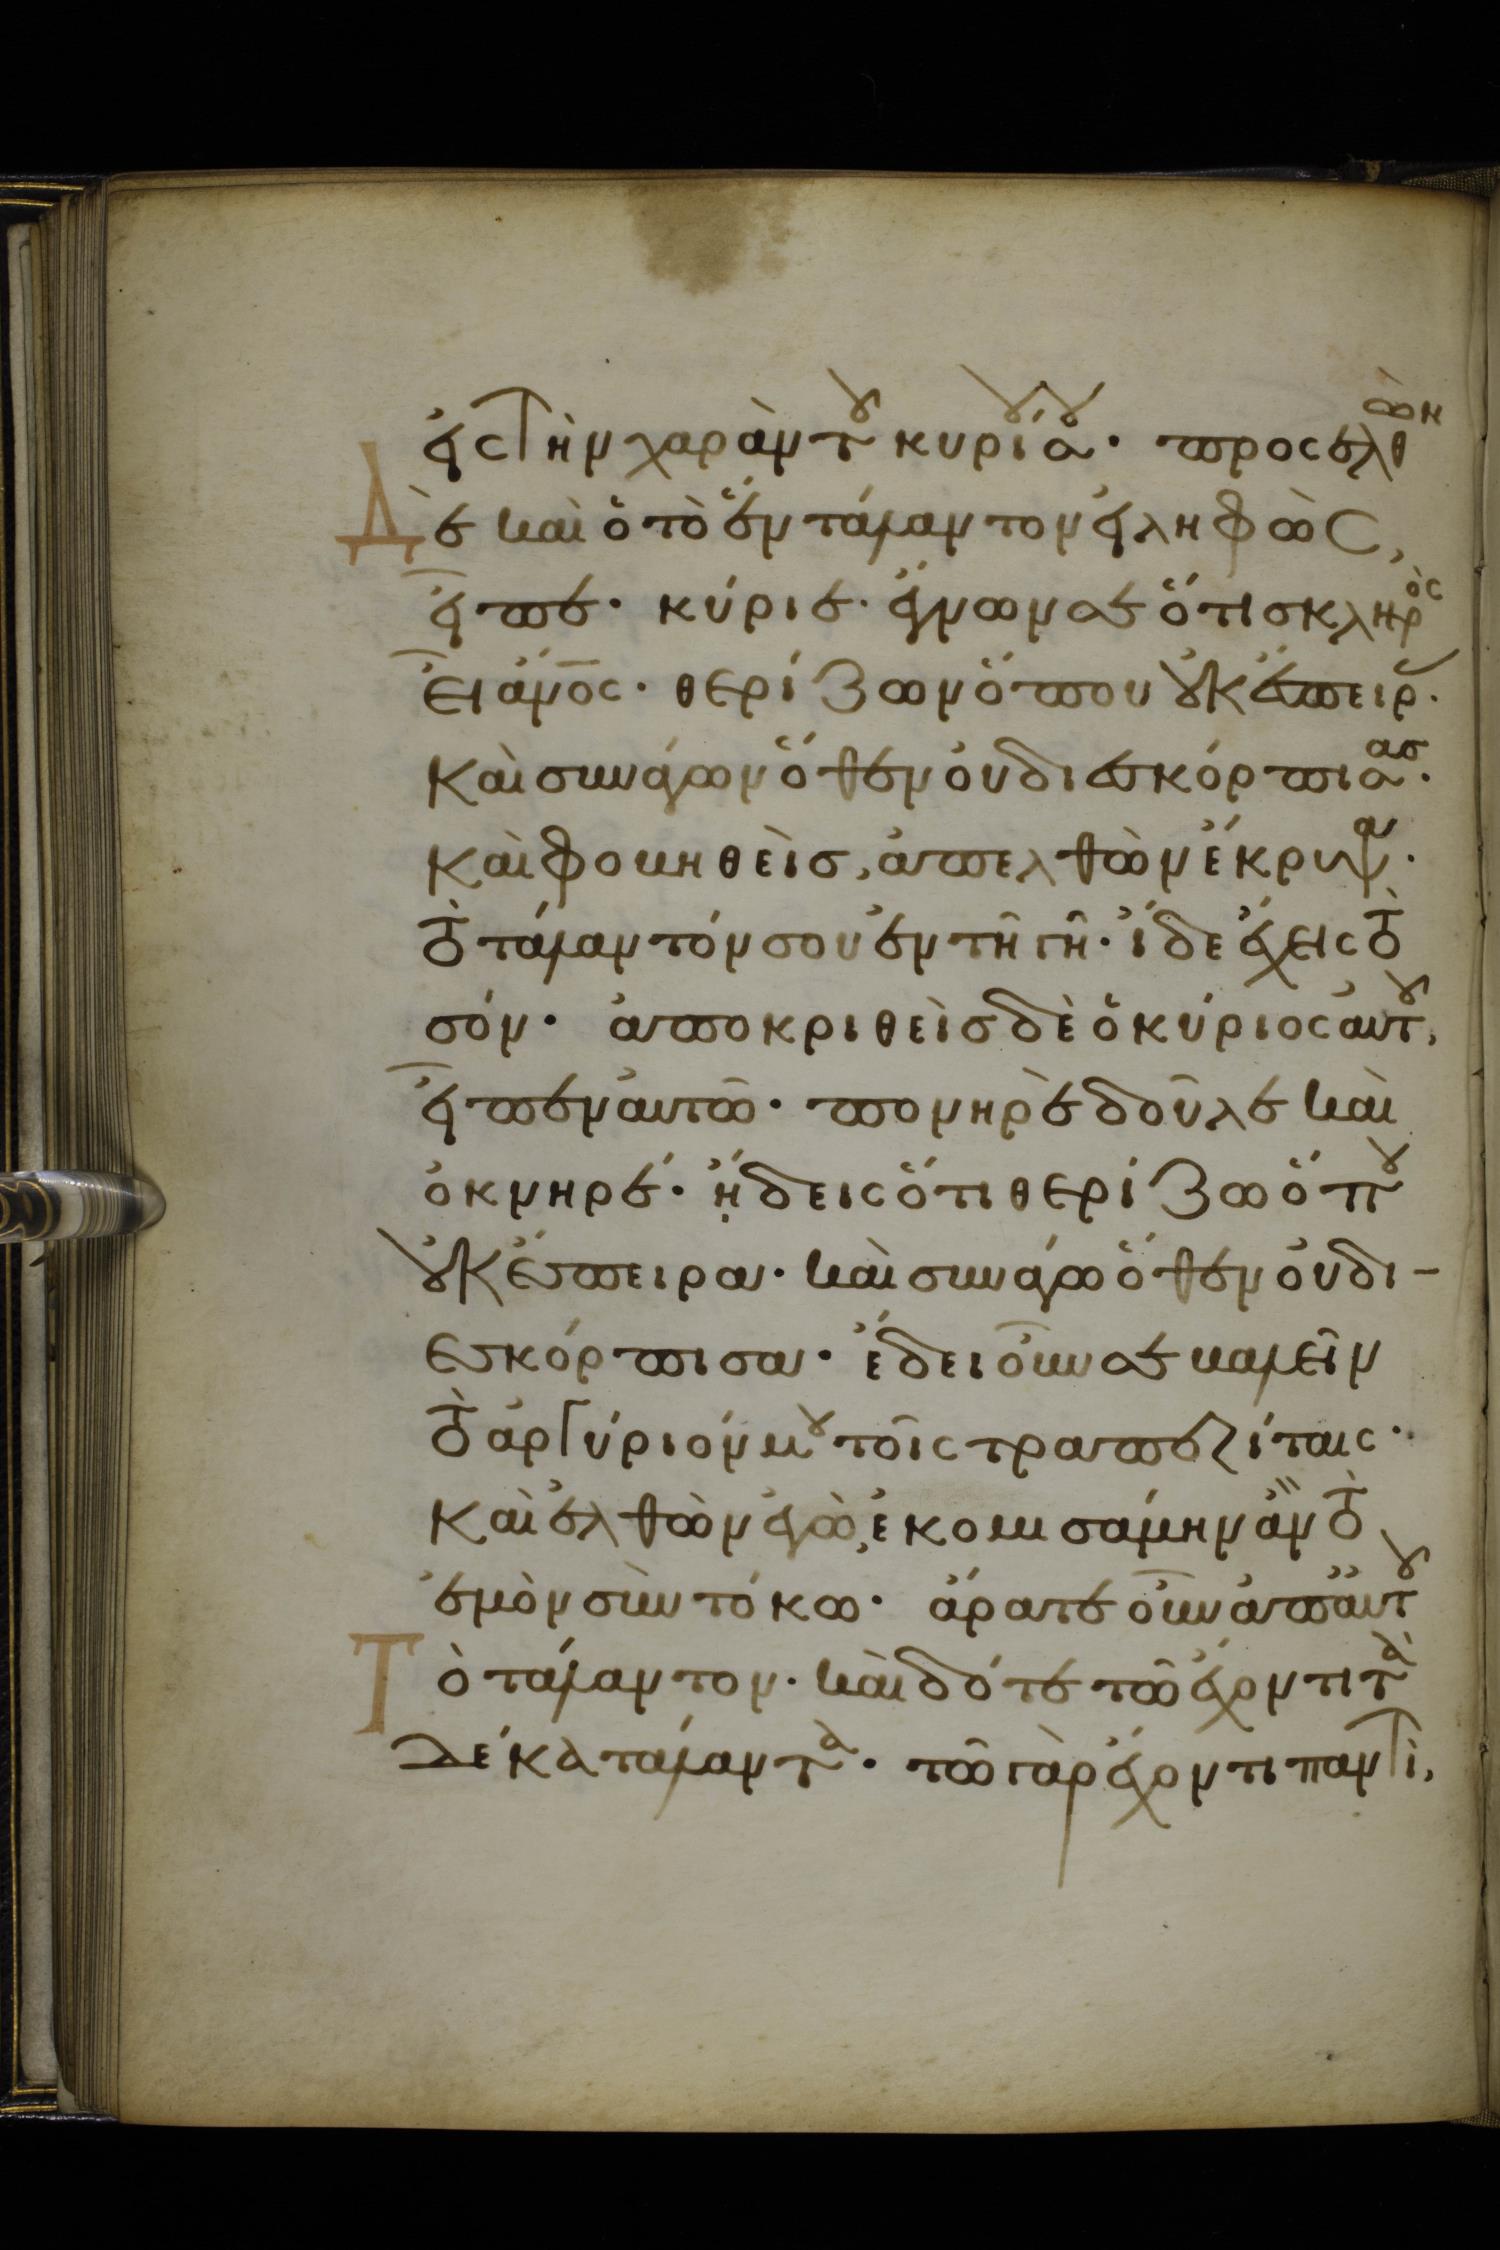 εἰς τὴν χαρὰν τοῦ κυρίου σου· προσελθὼν
Δὲ καὶ ὁ τὸ ἓν τάλαντον εἰληφὼς,
εἶπε· κύριε· ἔγνων σε ὅτι σκληρὸς
εἶ ἄνος· θερίζων ὅπου οὐκ ἔσπειρας·
καὶ συνάγων ὅθεν οὐ διεσκόρπισας·
καὶ φοβηθεὶς, ἀπελθὼν ἔκρυψα·
τὸ τάλαντόν σου ἐν τῆ γῆ· ἴδε ἔχεις τὸ
σόν· ἀποκριθεὶς δὲ ὁ κύριος αὐτοῦ,
εἶπεν αὐτῶ· πονηρὲ δοῦλε καὶ
ὀκνηρέ· ἤδεις ὅτι θερίζω ὅπου
οὐκ ἔσπειρα· καὶ συνάγω ὅθεν οὐ δι-
εσκόρπισα· ἔδει οὖν σε βαλεῖν
τὸ ἀργύριόν μου τοῖς τραπεζίταις·
καὶ ἐλθὼν ἐγὼ, ἐκομισάμην ἂν τὸ
ἐμὸν σὺν τόκω· ἄρατε οὖν ἀπ αὐτοῦ
Τὸ τάλαντον· καὶ δότε τῶ ἔχοντι τὰ
δέκα τάλαντα· τῶ γὰρ ἔχοντι παντὶ,